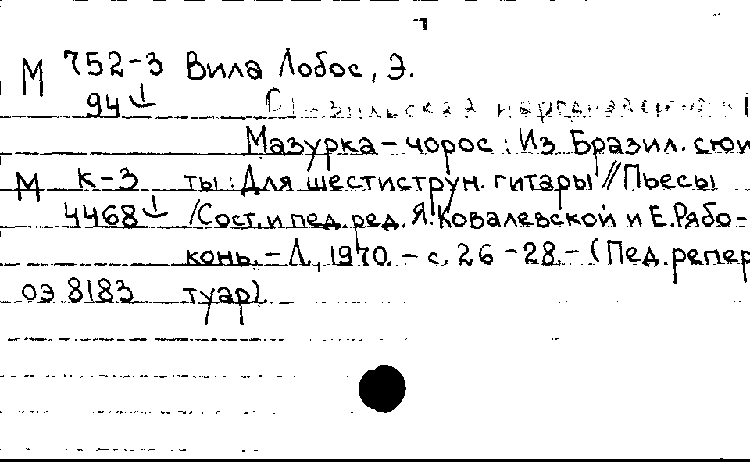 М 752-3 Вила Лобос, Э.
94↓
Мазурка-чорос: Из Бразил. сюи
М к-3 ты: Для шестиструн. гитары // Пьесы
4468↓ /Сост. и пед. ред. Я. Ковалевской и Е. Рябо-
конь. – Л., 1970. – с. 26-28. – (Пед. репер
оэ 8183 туар)